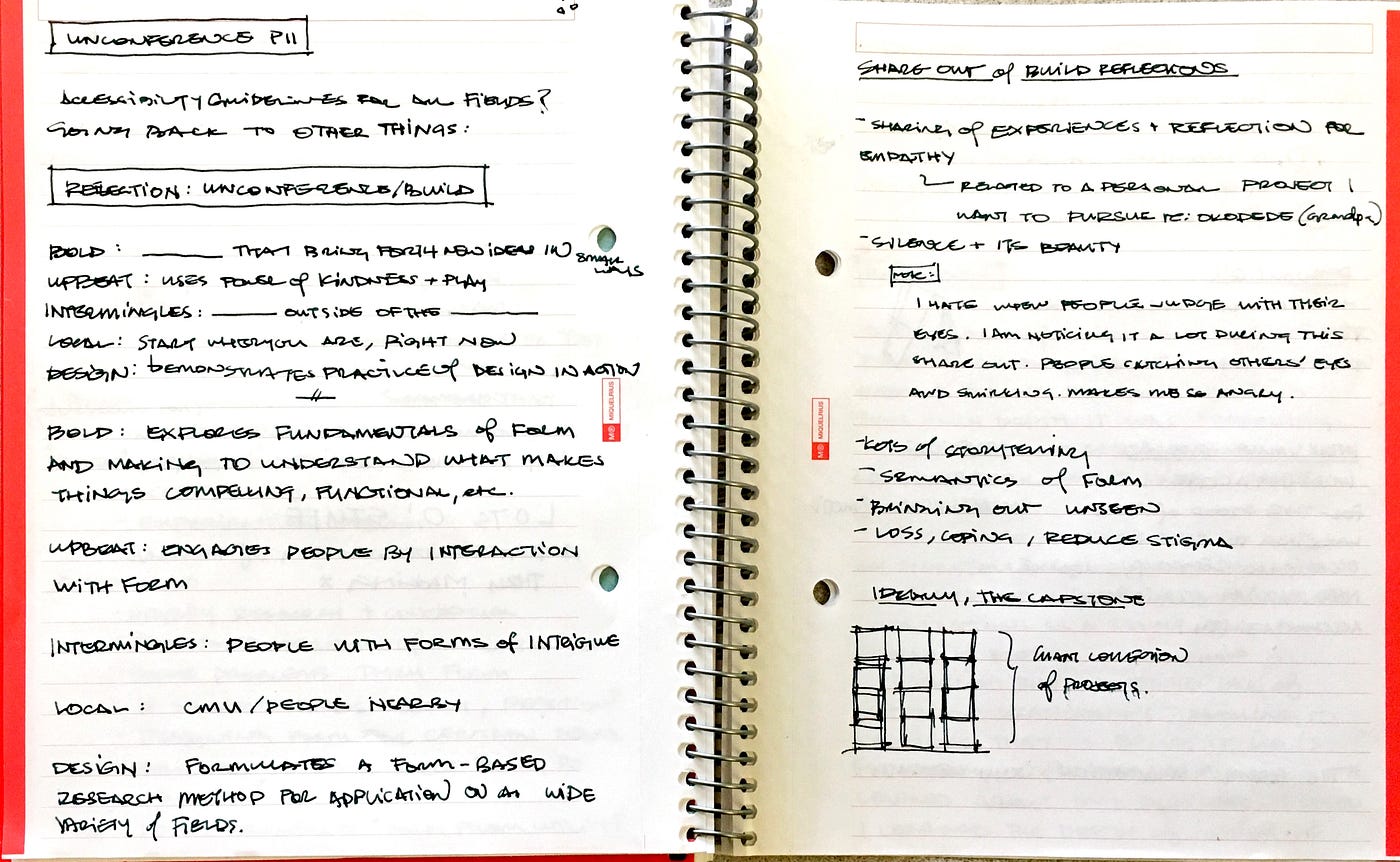 UNCONFERENCE PII
ACCESSIBILITY GUIDELINES FOR ALL FIELDS?
GOING BACK TO OTHER THINGS:
REFLECTION: UNCONFERENCE/BUILD
BOLD: ______ THAT BRING FORTH NEW IDEAS IN SMALL WAYS
UPBEAT: USES POWER of KINDNESS + PLAY
INTERMINGLES: ______ OUTSIDE OF THE ______
LOCAL: START WHERE YOU ARE, RIGHT NOW
DESIGN: DEMONSTRATES PRACTICE of DESIGN IN ACTION
BOLD: EXPLORES FUNDAMENTALS of FORM
AND MAKING TO UNDERSTAND WHAT MAKES
THINGS COMPELLING, FUNCTIONAL, etc.
UPBEAT: ENGAGES PEOPLE BY INTERACTION
WITH FORM
INTERMINGLES: PEOPLE WITH FORMS of INTRIGUE
LOCAL: CMU/PEOPLE NEARBY
DESIGN: FORMULATES A FORM-BASED
RESEARCH METHOD FOR APPLICATION ON A WIDE
VARIETY of FIELDS.
MIQUELRIUS
SHARE OUT of BUILD REFLECTIONS
- SHARING of EXPERIENCES + REFLECTION FOR
EMPATHY
RELATED TO A PERSONAL PROJECT I
WANT TO PURSUE re: DKODEDE (Grandpa)
- SILENCE + ITS BEAUTY
NOTE:
I HATE WHEN PEOPLE JUDGE WITH THEIR
EYES. I AM NOTICING IT A LOT DURING THIS
SHARE OUT. PEOPLE CATCHING OTHERS' EYES
AND SMIRKING. MAKES ME SO ANGRY.
MIQUELRIUS
- LOTS of STORYTELLING
- SEMANTICS of FORM
- BRINGING OUT UNSEEN
- LOSS, COPING, REDUCE STIGMA
IDEALLY, THE CAPSTONE
GIANT COLLECTION
of PROJECTS.